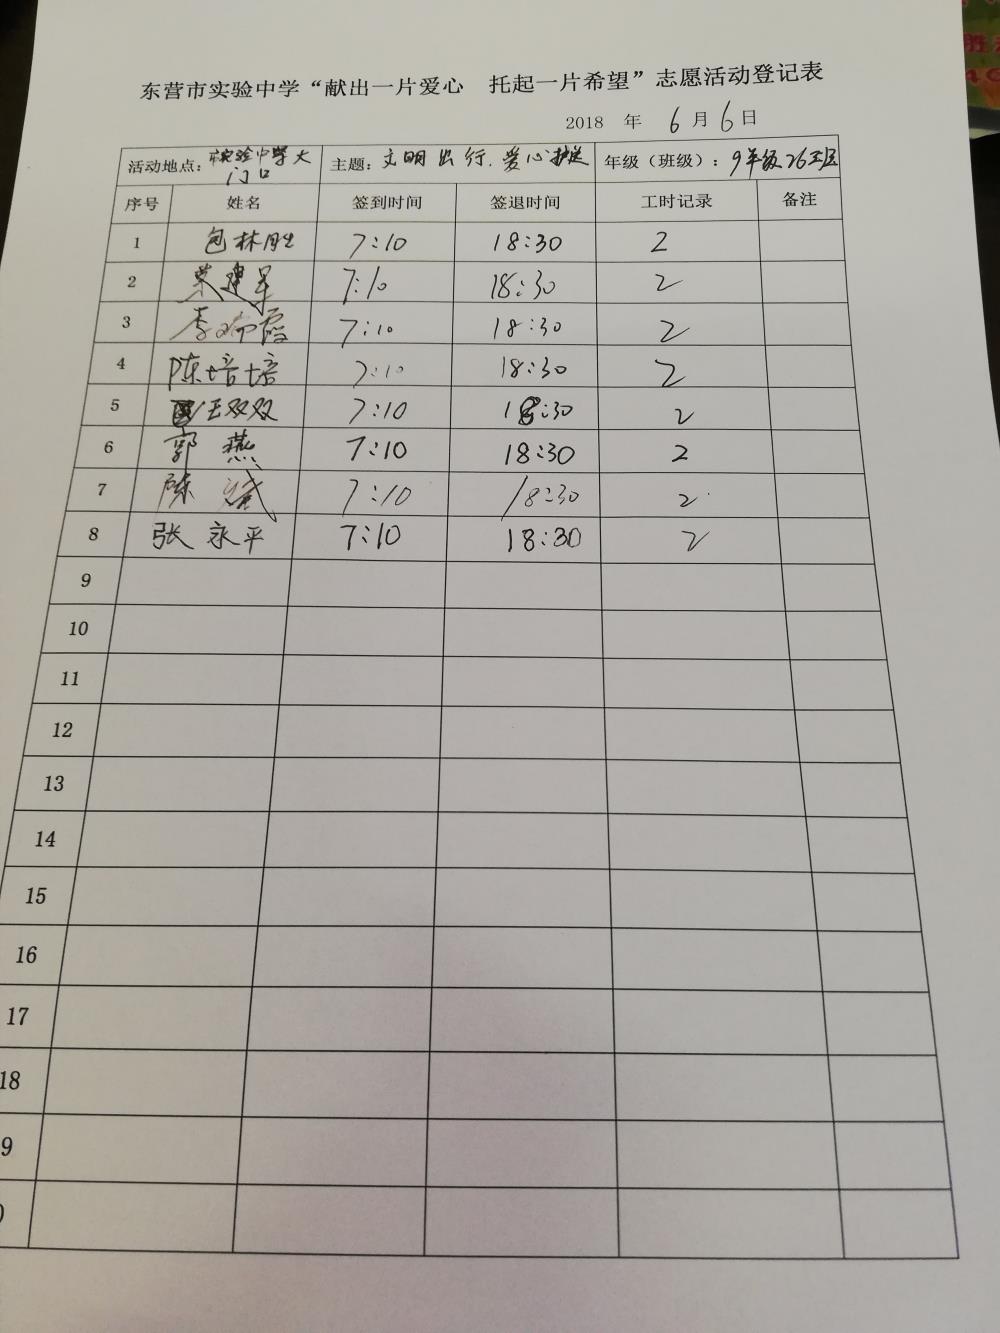 东营市实验中学“献出一片爱心 托起一片希望”志愿活动登记表
2018 年 6月6日
活动地点：市实验中学大门口 主题：文明出行.爱心护送 年级（班级）：9年级26班
序号 姓名 签到时间 签退时间 工时记录 备注
1 包林胜 7:10 18:30 2
2 建军 7:10 18:30 2
3 李瑞霞 7:10 18:30 2
4 陈培培 7:10 18:30 2
5 王双双 7:10 18:30 2
6 郭燕 7:10 18:30 2
7 陈 7:10 18:30 2
8 张永平 7:10 18:30 2
9
10
11
12
13
14
15
16
17
18
9
胜